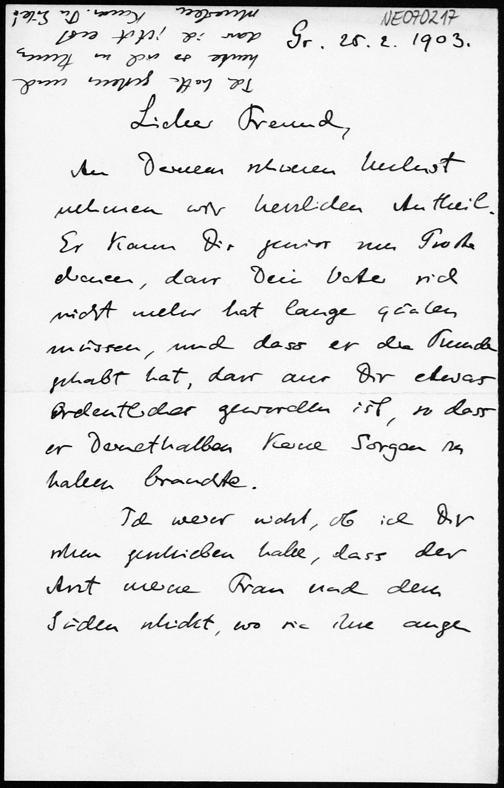 NE070217
Gr. 25. 2. 1903.
Lieber Freund,
An Deinem schweren Verlust
nehmen wir herzlichen Antheil.
Er kann Dir gewiss zum Troste
dienen, dass Dein Vater sich
nicht mehr hat lange quälen
müssen, und dass er die Freude
gehabt hat, dass aus Dir etwas
ordentliches geworden ist, so dass
er Deinethalben keine Sorgen zu
haben brauchte.
Ich weiss nicht, ob ich Dir
schon geschrieben habe, dass der
Arzt meine Frau nach dem
Süden schickt, wo sie ihre
Ich hatte gestern und
heute so viel zu
dass ich jetzt erst
kann. In Eile!